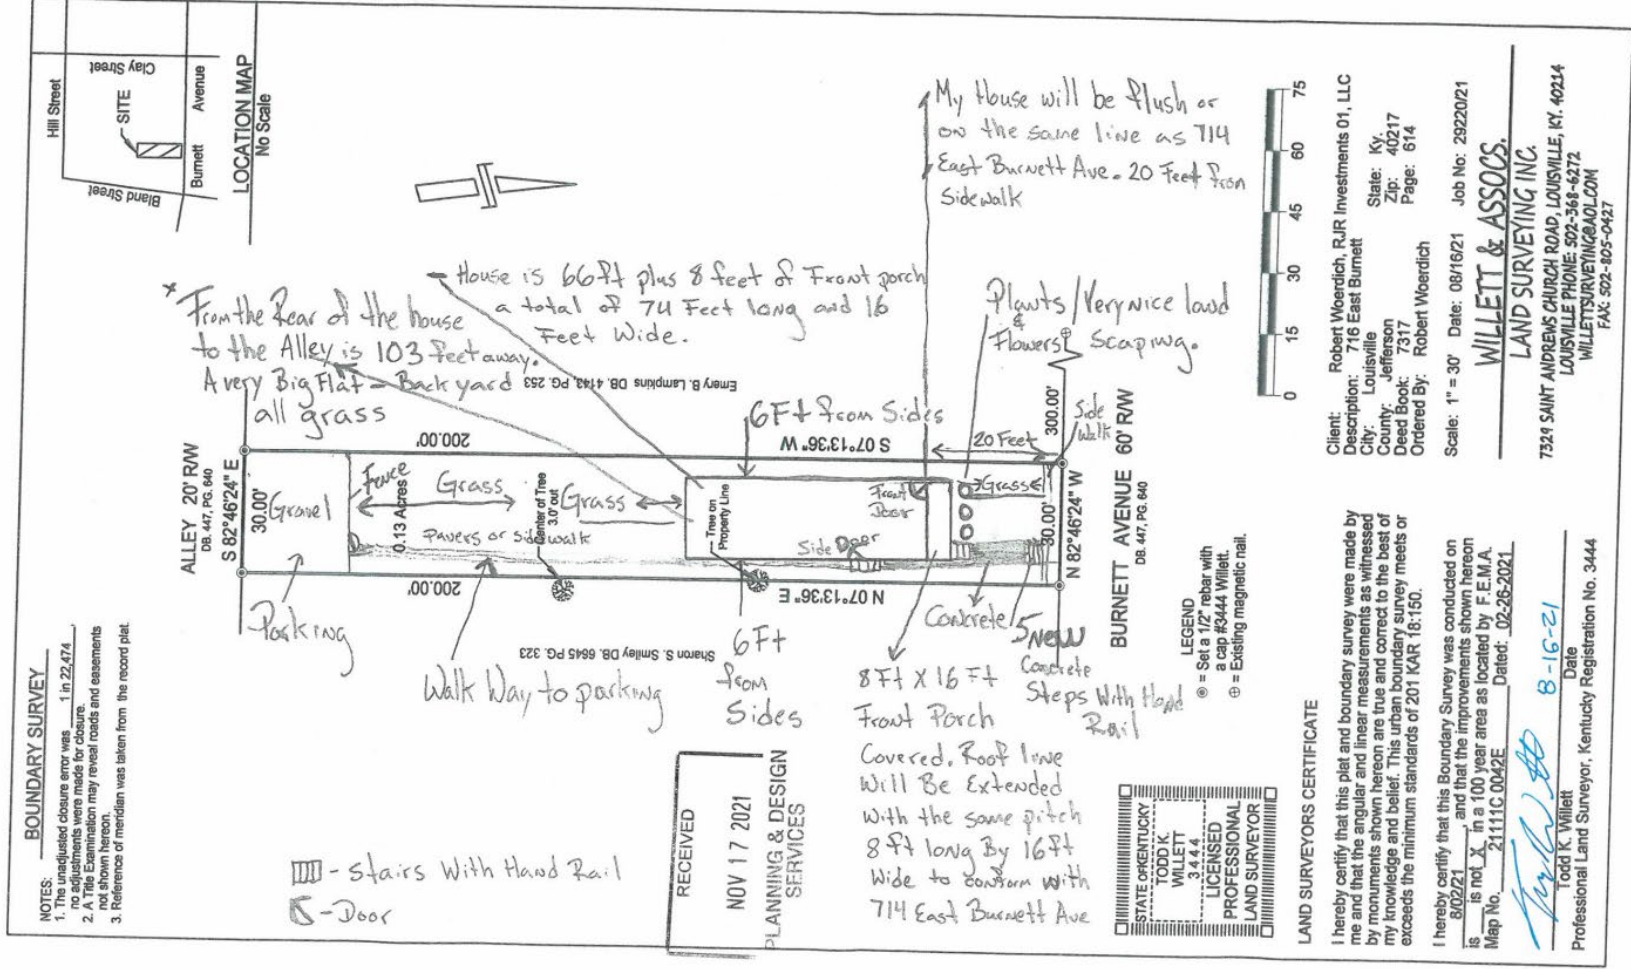 BOUNDARY SURVEY
NOTES:
1. The unadjusted closure error was 1 in 22,474 ,
no adjustments were made for closure.
2. A Title Examination may reveal roads and easements
not shown hereon.
3. Reference of meridian was taken from the record plat.
Hill Street
Clay Street
SITE
Bland Street
Burnett Avenue
LOCATION MAP
No Scale
My House will be flush or
on the same line as 714
East Burnett Ave. 20 Feet from
Sidewalk
House is 66ft plus 8 feet of Front porch
a total of 74 Feet long and 16
Feet Wide.
From the Rear of the house
to the Alley is 103 feet away.
A very Big Flat - Back yard
all grass
Plants/Very nice land
&
Flowers Scaping.
Emery B. Lampkins DB. 4143, PG. 253
6Ft from Sides
200.00'
S 07°13'36" W
20 Feet
300.00'
Side
Walk
ALLEY 20' R/W
DB. 447, PG. 640
S 82°46'24" E
30.00'
Gravel
Fence
0.13 Acres
Grass
Center of Tree
3.0' out
Grass
Tree on
Property Line
Front
Door
Grass
Pavers or sidewalk
Side Door
30.00'
N 82°46'24" W
BURNETT AVENUE 60' R/W
DB. 447, PG. 640
200.00'
N 07°13'36" E
Parking
Walk Way to parking
Sharon S. Smiley DB. 6645 PG. 323
6Ft
from
Sides
Concrete
5 New
Concrete
Steps With Hand
Rail
8Ft X 16 Ft
Front Porch
Covered. Roof line
Will Be Extended
With the same pitch
8 ft long By 16ft
Wide to conform with
714 East Burnett Ave
- Stairs With Hand Rail
- Door
RECEIVED
NOV 17 2021
PLANNING & DESIGN
SERVICES
LEGEND
= Set a 1/2" rebar with
a cap #3444 Willett.
= Existing magnetic nail.
STATE OF KENTUCKY
TODD K.
WILLETT
3444
LICENSED
PROFESSIONAL
LAND SURVEYOR
0 15 30 45 60 75
Client: Robert Woerdich, RJR Investments 01, LLC
Description: 716 East Burnett
City: Louisville State: Ky.
County: Jefferson Zip: 40217
Deed Book: 7317 Page: 614
Ordered By: Robert Woerdich
Scale: 1" = 30' Date: 08/16/21 Job No: 29220/21
WILLETT & ASSOCS.
LAND SURVEYING INC.
7329 SAINT ANDREWS CHURCH ROAD, LOUISVILLE, KY. 40214
LOUISVILLE PHONE: 502-368-6272
WILLETTSURVEYING@AOL.COM
FAX: 502-805-0427
LAND SURVEYORS CERTIFICATE
I hereby certify that this plat and boundary survey were made by
me and that the angular and linear measurements as witnessed
by monuments shown hereon are true and correct to the best of
my knowledge and belief. This urban boundary survey meets or
exceeds the minimum standards of 201 KAR 18:150.
I hereby certify that this Boundary Survey was conducted on
8/02/21 , and that the improvements shown hereon
is is not X in a 100 year area as located by F.E.M.A.
Map No. 21111C 0042E Dated: 02-26-2021
8-16-21
Todd K. Willett Date
Professional Land Surveyor, Kentucky Registration No. 3444